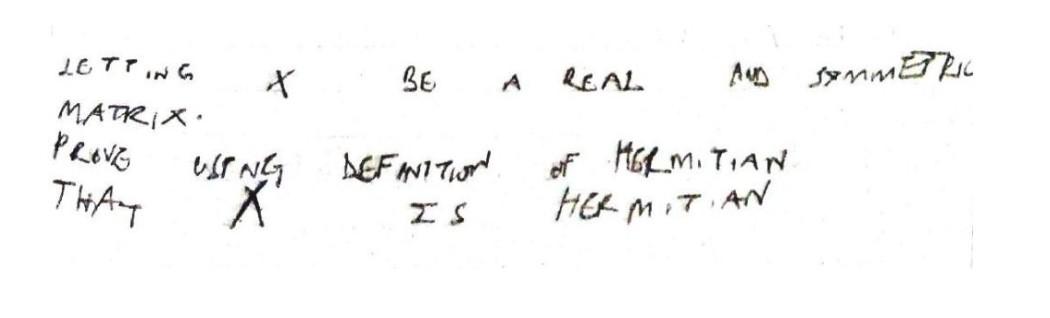 LETTING X BE A REAL AND SYMMETRIC
MATRIX.
PROVE USING DEFINITION OF HERMITIAN
THAT X IS HERMITIAN